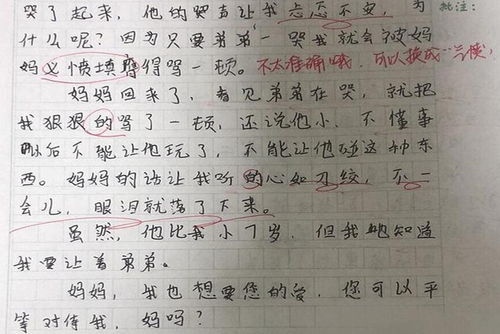 哭了起来，他的哭声让我忐忑不安，为
批注：
什么呢？因为只要弟弟一哭我就会被妈
妈义愤填膺得骂一顿。不太准确哦，可以换成“气愤”
妈妈回来了，看见弟弟在哭，就把
我狠狠的骂了一顿，还说他小，不懂事
以后不能让他玩了，不能让他碰这种东
西。妈妈的话让我听的心如刀绞，不一
会儿，眼泪就落了下来。
虽然，他比我小7岁，但我也知道
我要让着弟弟。
妈妈，我也想要您的爱，您可以平
等对待我，妈吗？